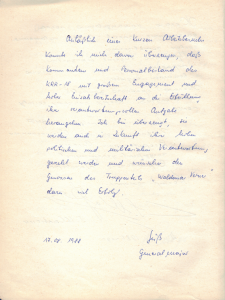 Anläßlich eines kurzen Arbeitsbesuchs
konnte ich mich davon überzeugen, daß
Kommandeur und Personalbestand der
mit großem Engagement und
hoher Einsatzbereitschaft an die Erfüllung
ihrer verantwortungsvollen Aufgabe
herangehen. Ich bin überzeugt, sie
werden auch in Zukunft ihrer hohen
politischen und militärischen Verantwortung
gerecht werden und wünsche den
Genossen des Truppenteils
dazu viel Erfolg!
1988
Generalmajor